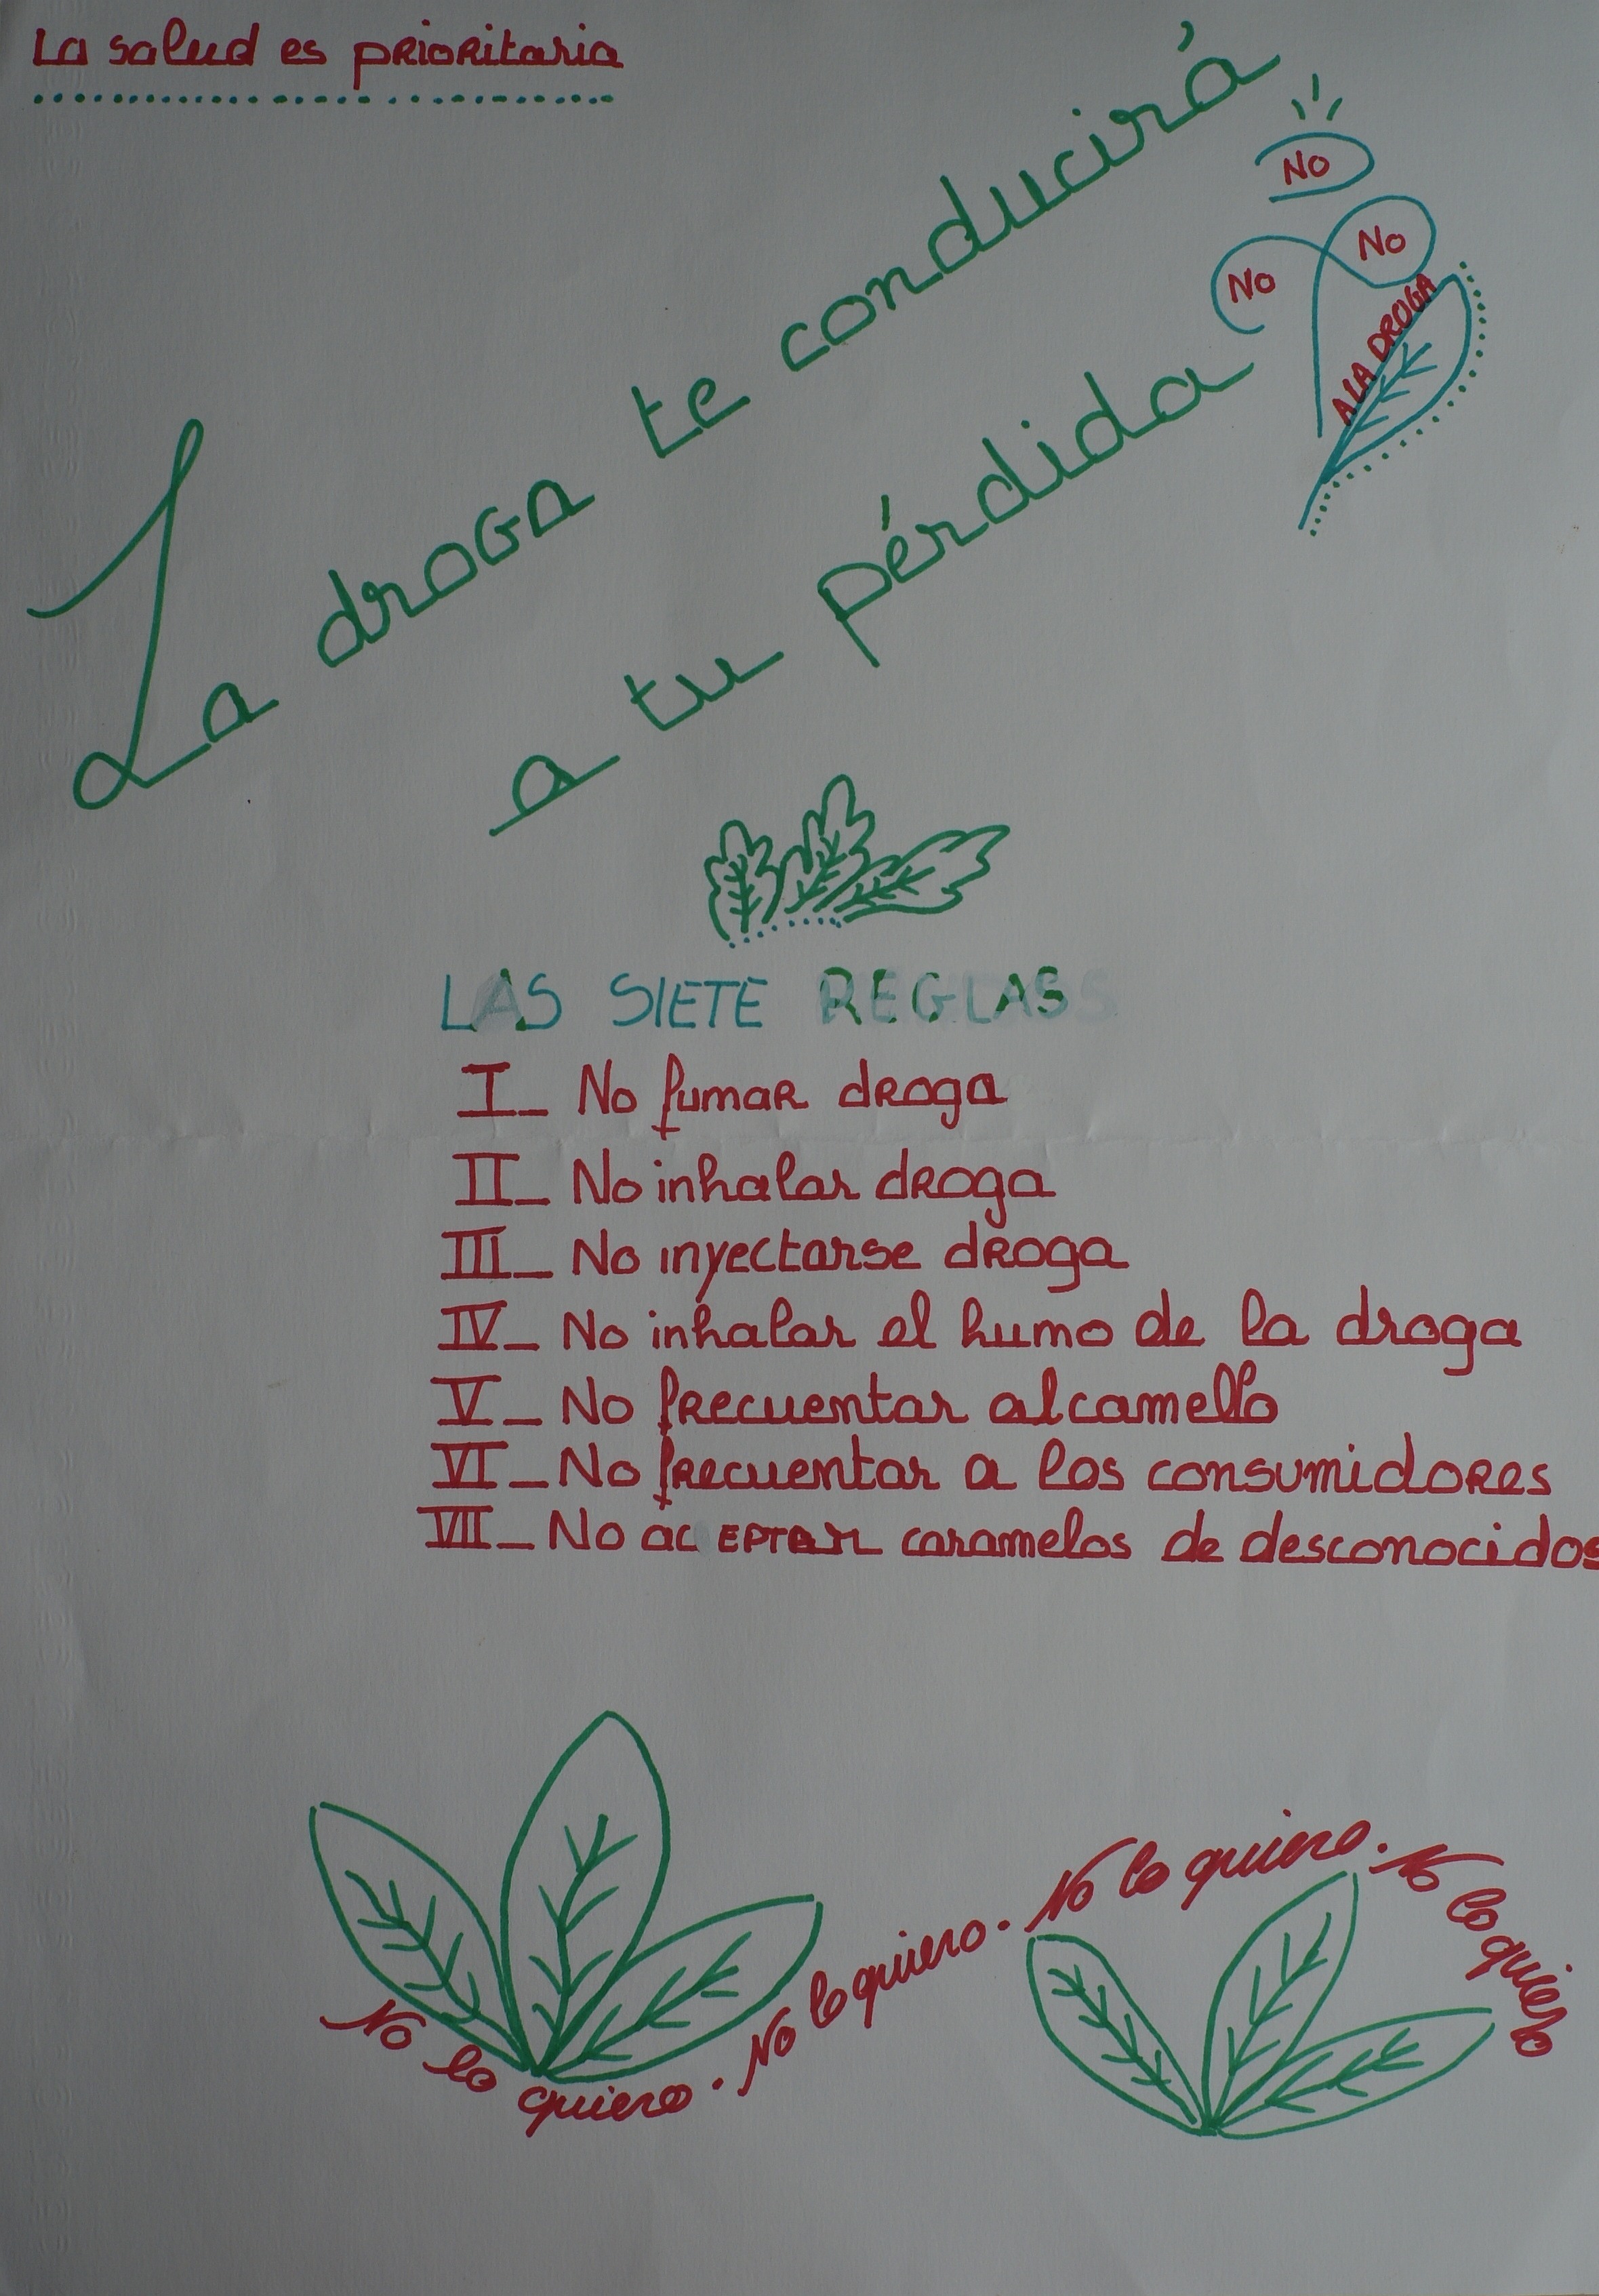 La salud es prioritaria
La droga te conducirá
a tu pérdida
No
No
No
A LA DROGA
LAS SIETE REGLAS
I_ No fumar droga
II_ No inhalar droga
III_ No inyectarse droga
IV_ No inhalar el humo de la droga
V_ No frecuentar al camello
VI_ No frecuentar a los consumidores
VII_ No acEPTAR caramelos de desconocidos
No lo quiero. No lo quiero. No lo quiero. No lo quiero